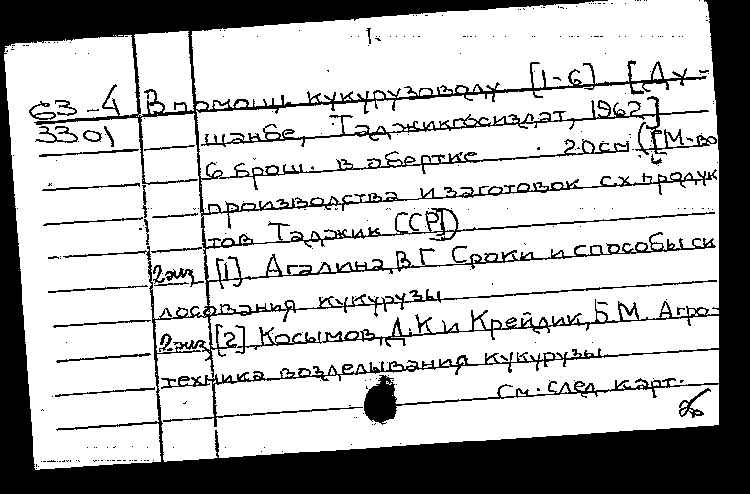 1.
63-4 В помощь кукурузоводу [1-6]. [Ду=
3301 шанбе, Таджикгосиздат, 1962]
6 брош. в обертке. 20см. ([М-во
производства и заготовок с.х. продук
тов Таджик ССР])
2экз [1]. Агалина, В.Г Сроки и способы си
лосования кукурузы
2экз [2]. Косымов, Д.К и Крейдик, Б.М. Агро-
техника возделывания кукурузы
см. след карт.